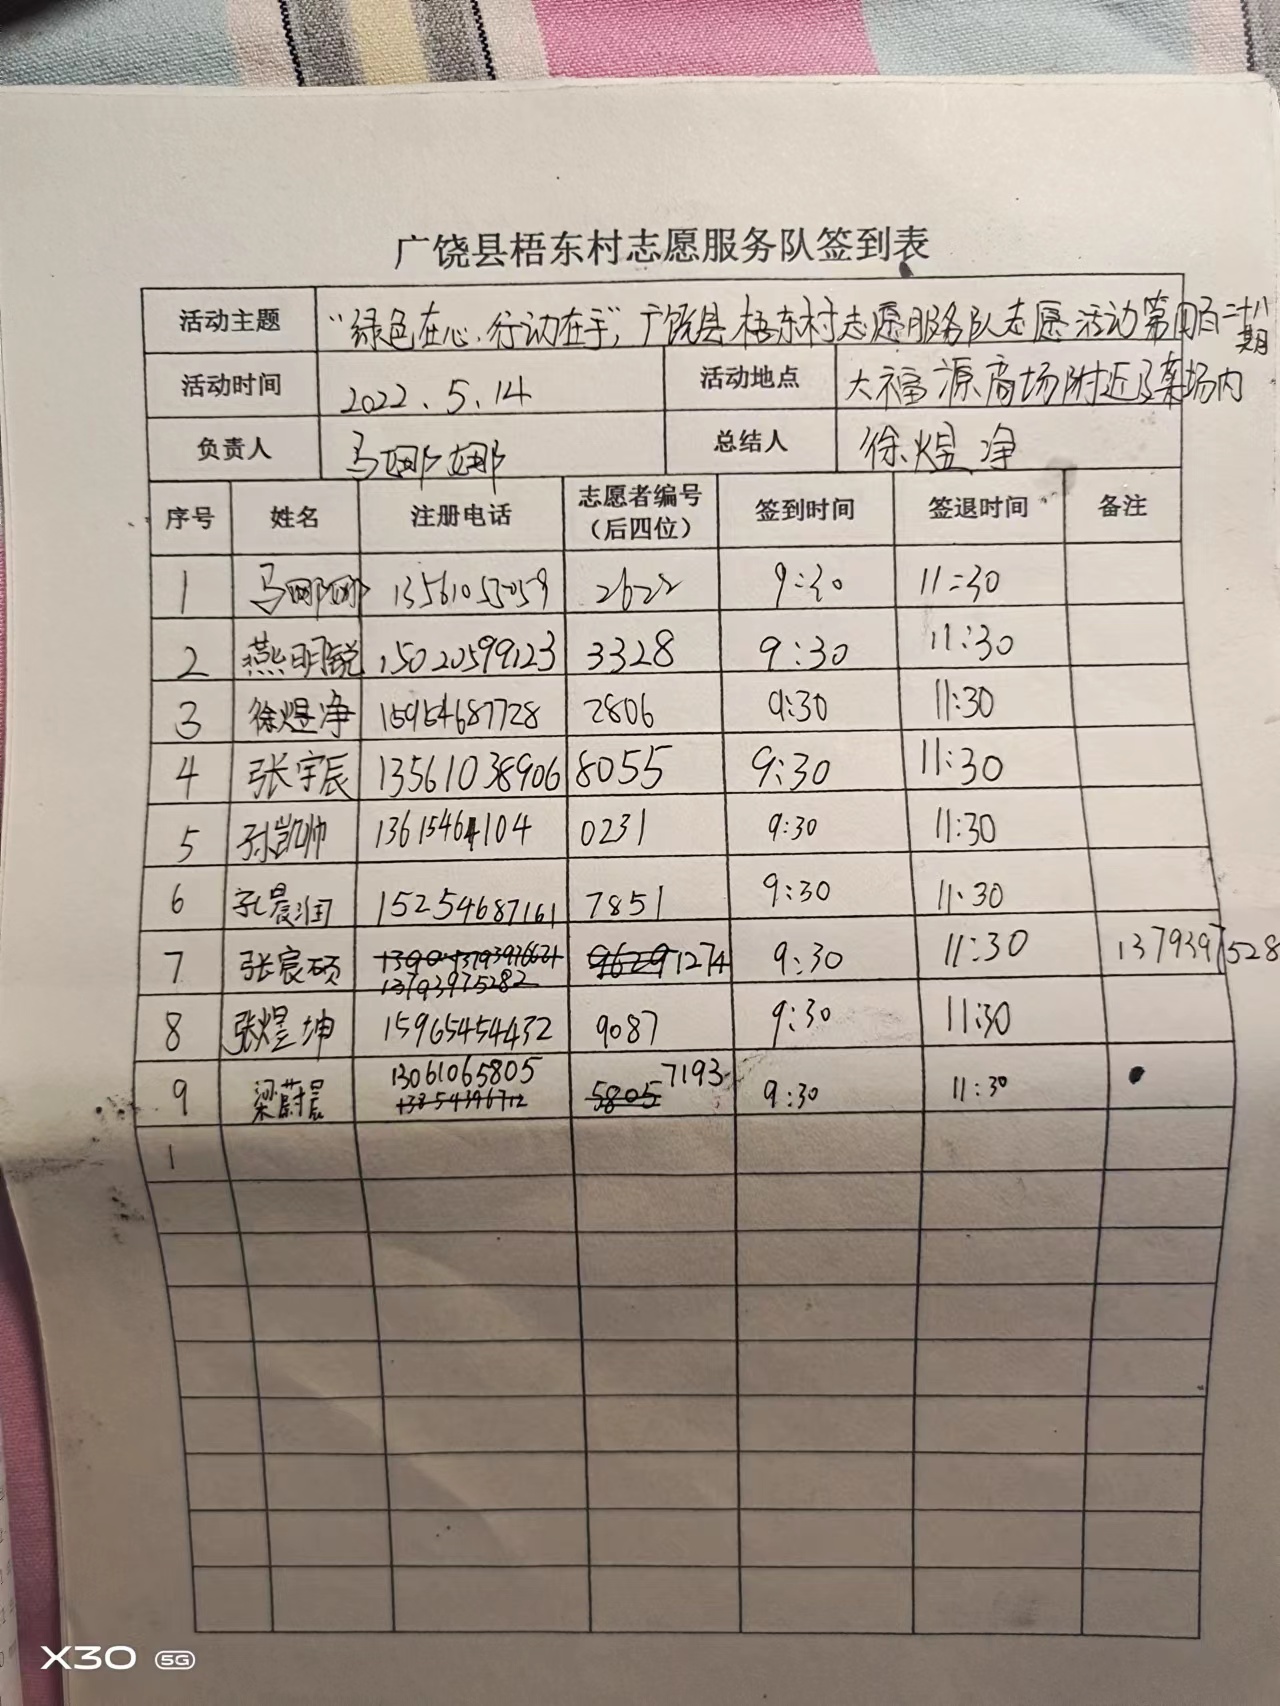 广饶县梧东村志愿服务队签到表
活动主题 “绿色在心,行动在手”,广饶县梧东村志愿服务队志愿活动第四百二十八期
活动时间 2022.5.14 活动地点 大福源商场附近及菜场内
负责人 马娜娜 总结人 徐煜净
序号 姓名 注册电话 志愿者编号(后四位) 签到时间 签退时间 备注
1 马娜娜 2622 9:30 11:30
2 燕明锐 15020599123 3328 9:30 11:30
3 徐煜净 15954687728 2806 9:30 11:30
4 张宇辰 13561038906 8055 9:30 11:30
5 孙凯帅 0231 9:30 11:30
6 孔晨润 15254687161 7851 9:30 11:30
7 张宸硕 1274 9:30 11:30 1379397528
13793975282
8 张煜坤 15965454432 9087 9:30 11:30
9 梁蔚晨 13061065805 7193 9:30 11:30
5805
1
X30 5G